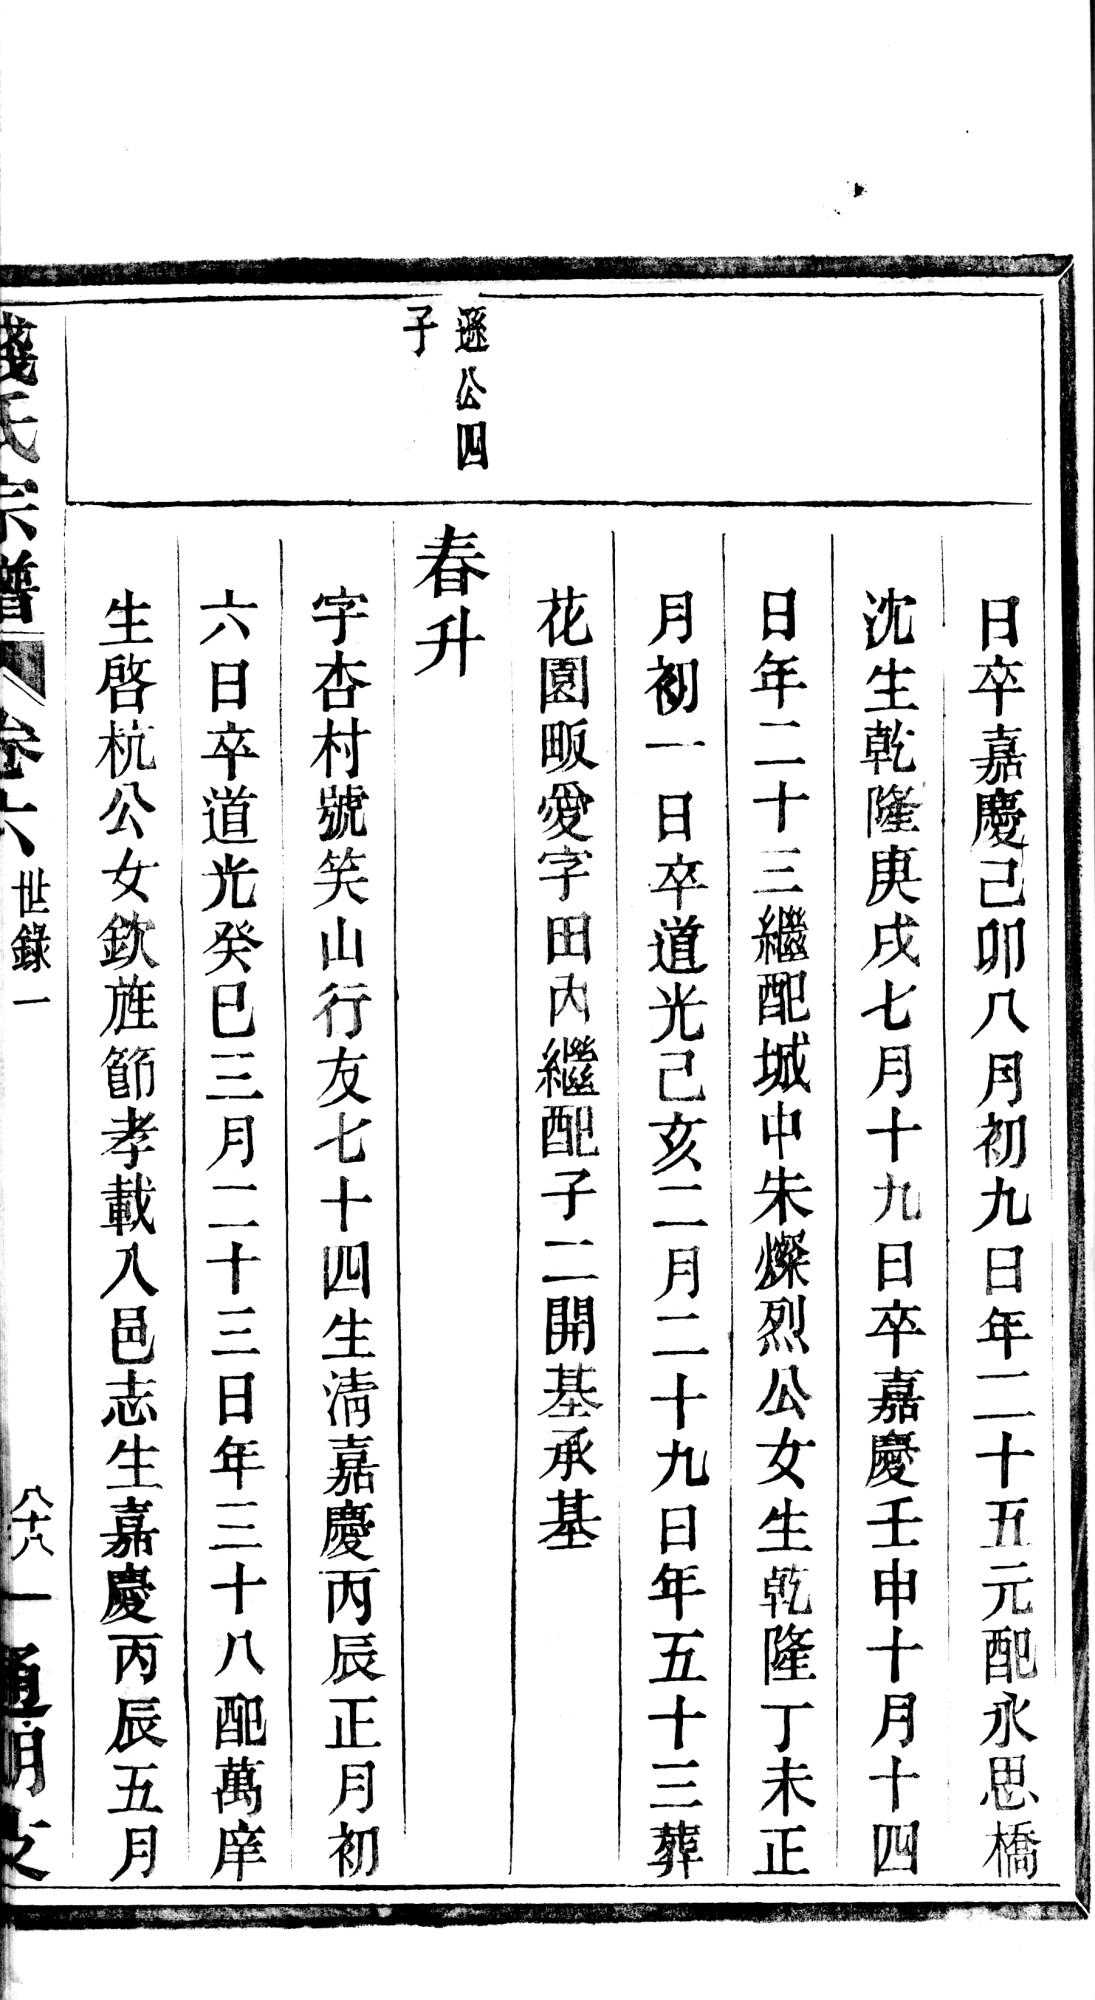 日卒嘉慶己卯八月初九日年二十五元配永思橋
沈生乾隆庚戌七月十九日卒嘉慶壬申十月十四
日年二十三繼配城中朱燦烈公女生乾隆丁未正
月初一日卒道光己亥二月二十九日年五十三葬
花園畈愛字田內繼配子二開基承基
遜公四
子
春升
字杏村號笑山行友七十四生清嘉慶丙辰正月初
六日卒道光癸巳三月二十三日年三十八配萬庠
生啓杭公女欽旌節孝載入邑志生嘉慶丙辰五月
錢氏宗譜
卷六
世錄一
八十八
通明支